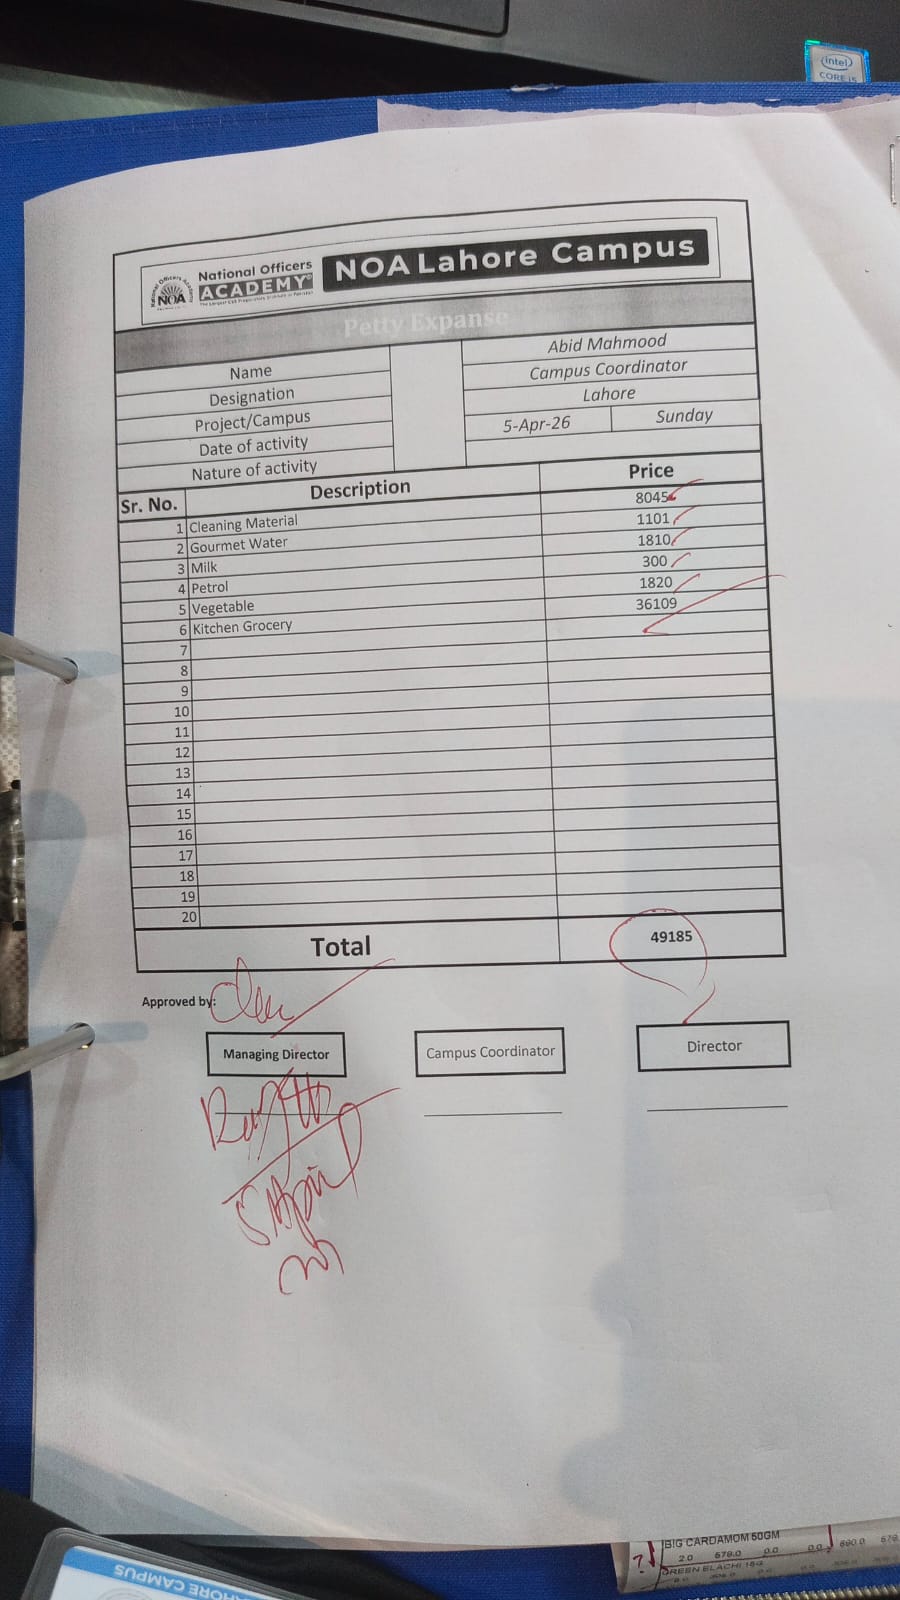 intel
CORE i5
National Officers
ACADEMY
NOA
NOA Lahore Campus
Petty Expanse
Name Abid Mahmood
Designation Campus Coordinator
Project/Campus Lahore
Date of activity 5-Apr-26 Sunday
Nature of activity
Sr. No. Description Price
1 Cleaning Material 8045
2 Gourmet Water 1101
3 Milk 1810
4 Petrol 300
5 Vegetable 1820
6 Kitchen Grocery 36109
7
8
9
10
11
12
13
14
15
16
17
18
19
20
Total 49185
Approved by:
Managing Director Campus Coordinator Director
5 April
BIG CARDAMOM 50GM
2.0 579.0 0.0 0.0
GREEN ELACHI
HORE CAMPUS